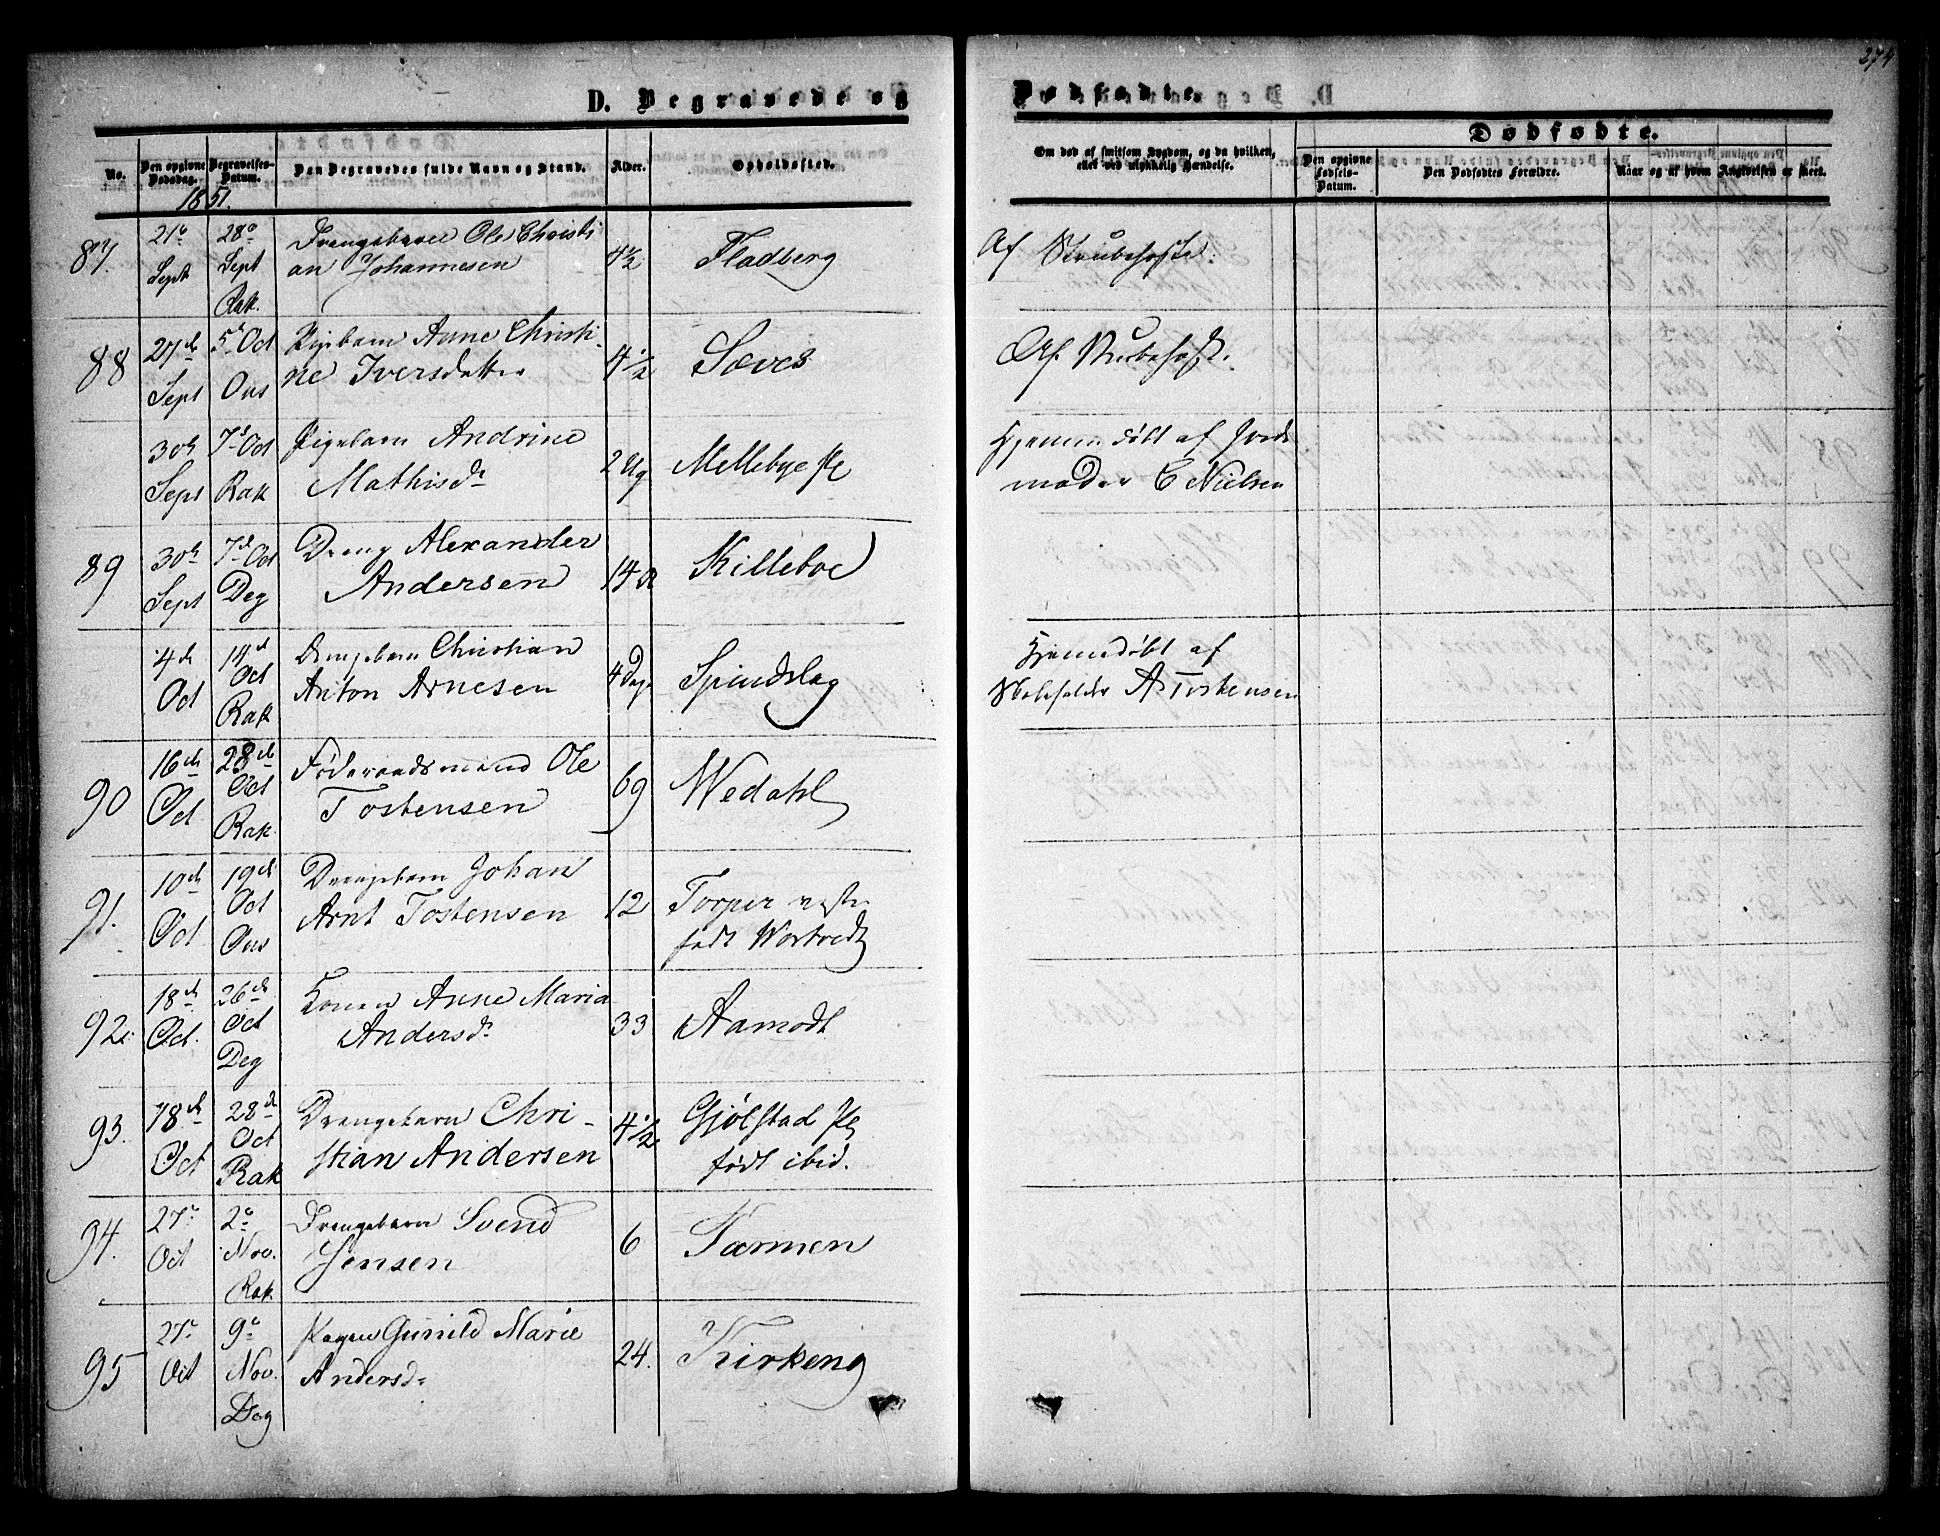 274
D. Begravede og
Dødfødte.
No.
Den opgivne Dødsdag.
Begravelses-Datum.
Den Begravedes fulde Navn og Stand.
Alder.
Opholdssted.
Om død af smitsom Sygdom, og da hvilken, eller ved ulykkelig Hændelse.
Dødfødte.
Den opgivne Fødsels-Datum.
Den Dødfødtes Forældre.
Naar og af hvem Angivelsen er skeet.
1851.
87.
21e Sept
28e Sept Rak.
Drengebarn Ole Christi
an Johannesen
4½
Fladberg
Af Strubehoste.
88
27de Sept
5te Oct Ous
Pigebarn Anne Christi-
ne Iversdatter
4½
Soves
Af Strubehost.
30te Sept
7de Oct Rak
Pigebarn Andrine
Mathisdr
2 Ug
Mellebye Pl
Hjemmedøbt af Jorde
moder C Nielsen
89
30te Sept
7de Oct Deg
Dreng Alexander
Andersen
14
Killeboe
4de Oct
14d Oct Rak
Drengebarn Christian
Anton Arnesen
4 Dage
Spindslag
Hjemmedøbt af
A Tostensen
90
16de Oct
28de Oct Rak
Föderaadsmand Ole
Tostensen
69
Wedahl
91.
10de Oct
19de Oct Ous
Drengebarn Johan
Arnt Tostensen
12
Torper
født
92.
18de Oct.
26de Oct Deg
Konen Anne Maria
Andersdr
33
Aamodt
93.
18de Oct
28de Oct Rak
Drengebarn Chri-
stian Andersen
4½
Gjölstad Pl
født ibid.
94.
27e Oct
2e Nov. Rak
Drengebarn Svend
Jensen
6
Tarmen
95
27e Oct
9e Nov. Deg
Pigen Gunild Marie
Andersdr
24.
Kirkeng